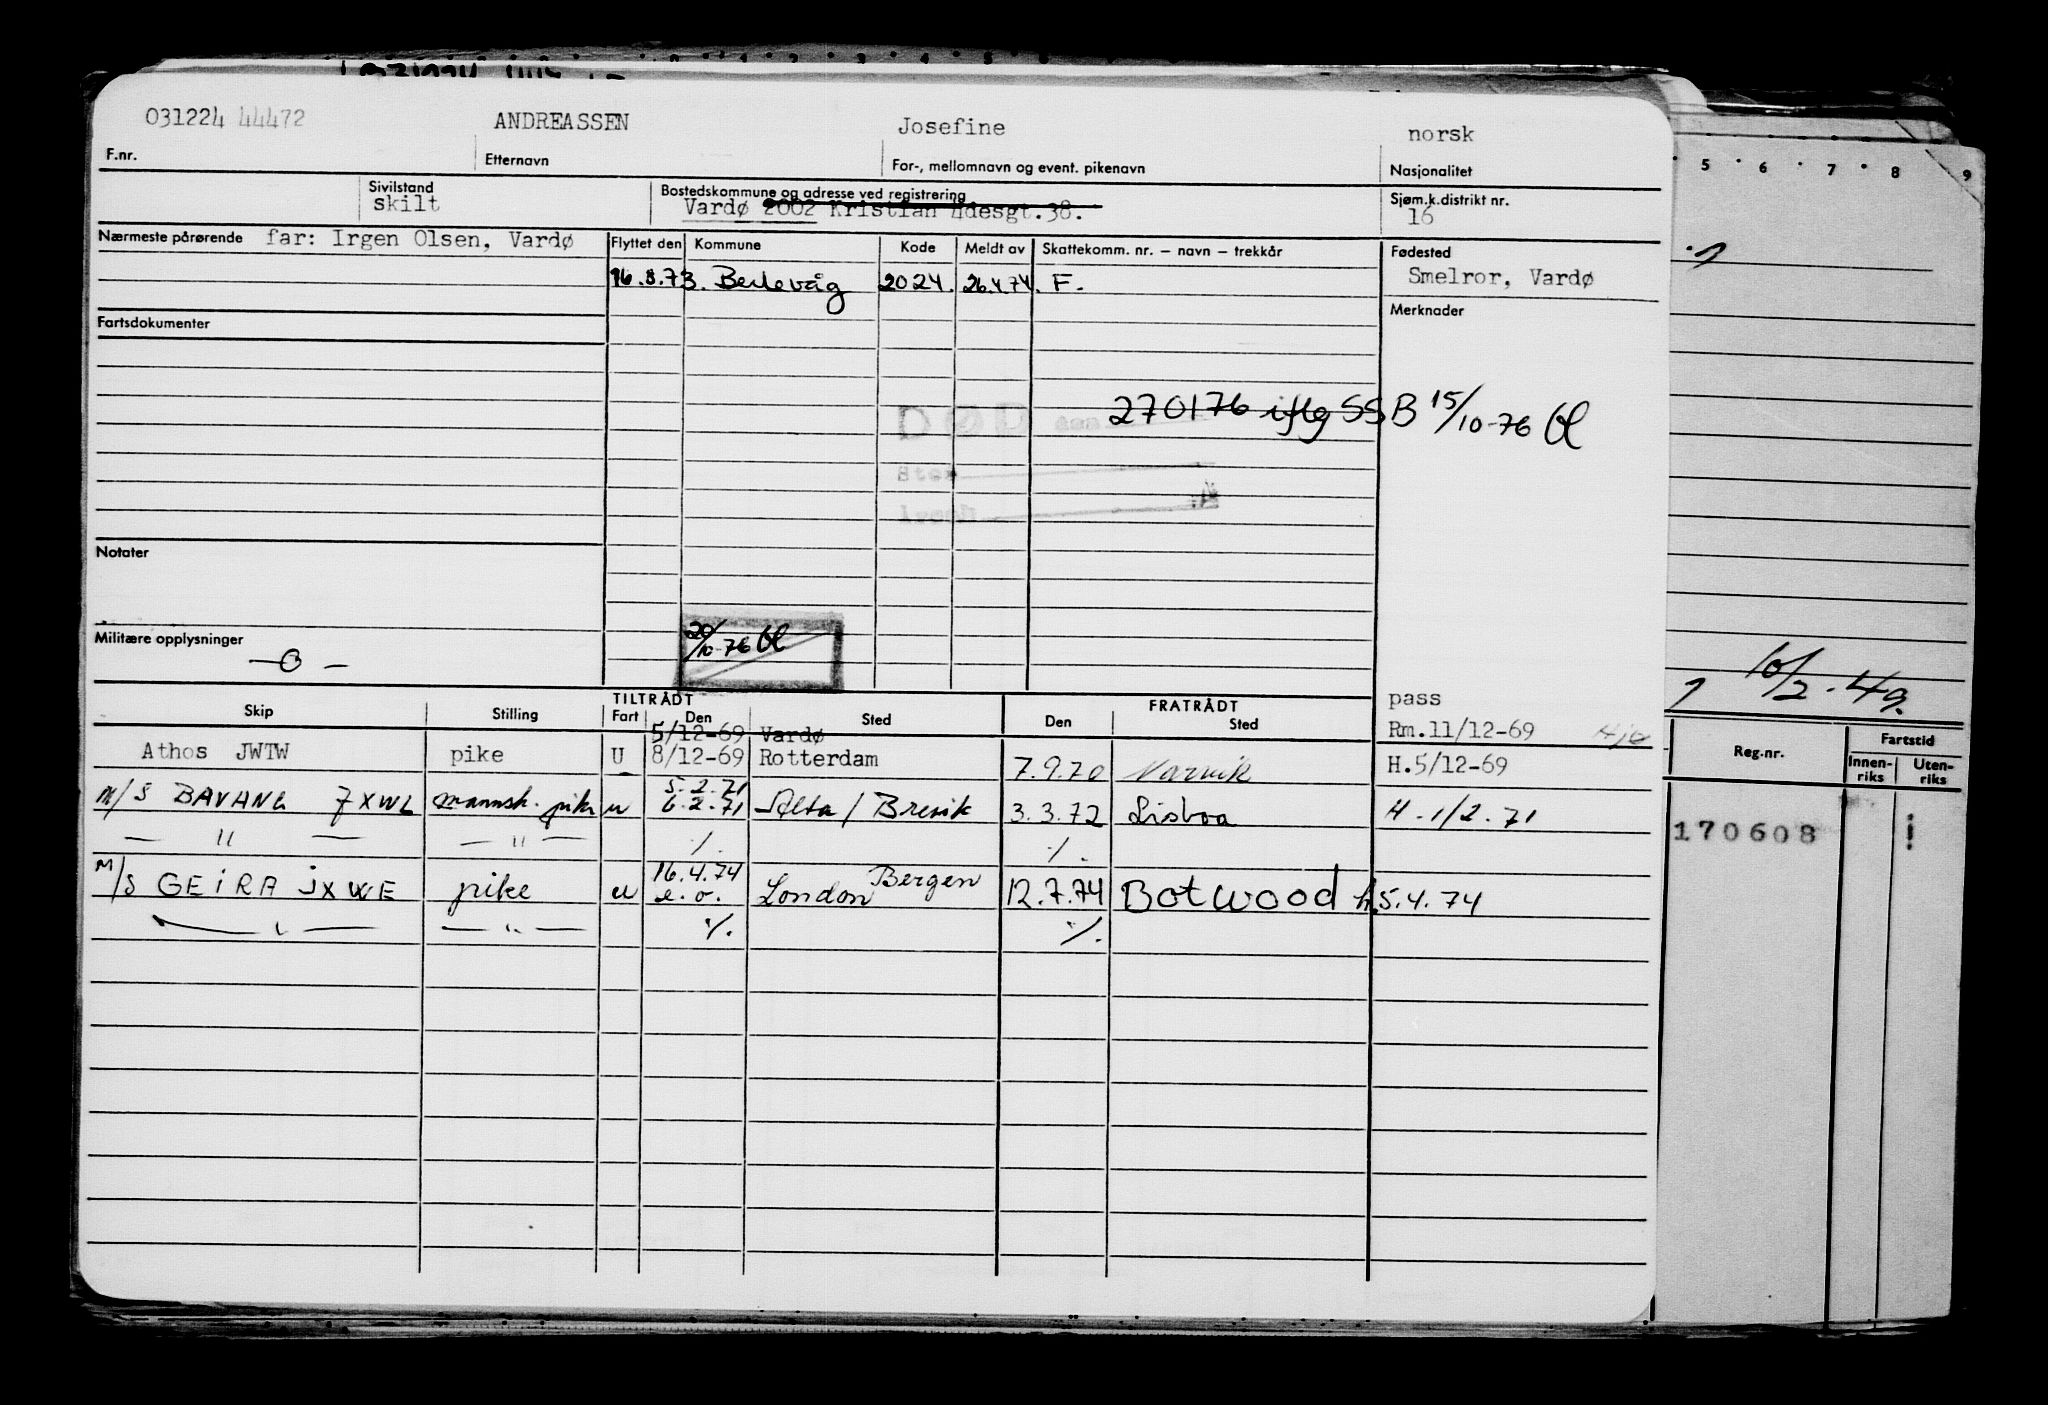 031224 44472 ANDREASSEN Josefine norsk
F.nr. Etternavn For-, mellomnavn og event. pikenavn Nasjonalitet
Sivilstand Bostedskommune og adresse ved registrering Sjøm.k.distrikt nr.
skilt Vardø 2002 Kristian 4desgt.38. 16
Nærmeste pårørende far: Irgen Olsen, Vardø Flyttet den Kommune Kode Meldt av Skattekomm. nr. – navn – trekkår Fødested
16.8.73. Berlevåg 2024. 26.4.74. F. Smelror, Vardø
Fartsdokumenter Merknader
DØD den 270176 iflg SSB 15/10-76
Sted
Årsak
Notater
Militære opplysninger 20/10-76
—0—
TILTRÅDT FRATRÅDT pass
Skip Stilling Fart Den Sted Den Sted
5/12-69 Vardø Rm.11/12-69
Athos JWTW pike U 8/12-69 Rotterdam 7.9.70 Narvik H.5/12-69
5.2.71
M/S BAVANG JXWL mannsk. pike u 6.2.71 Alta / Brevik 3.3.72 Lisboa H.1/2.71
— " — — " — ./. ./.
16.4.74 Bergen
M/S GEIRA JXWE pike u e.o. London 12.7.74 Botwood H.5.4.74
— " — — " — ./. ./.
5 6 7 8 9
10/2.49.
Reg.nr. Fartstid
Innen-riks Uten-riks
170608